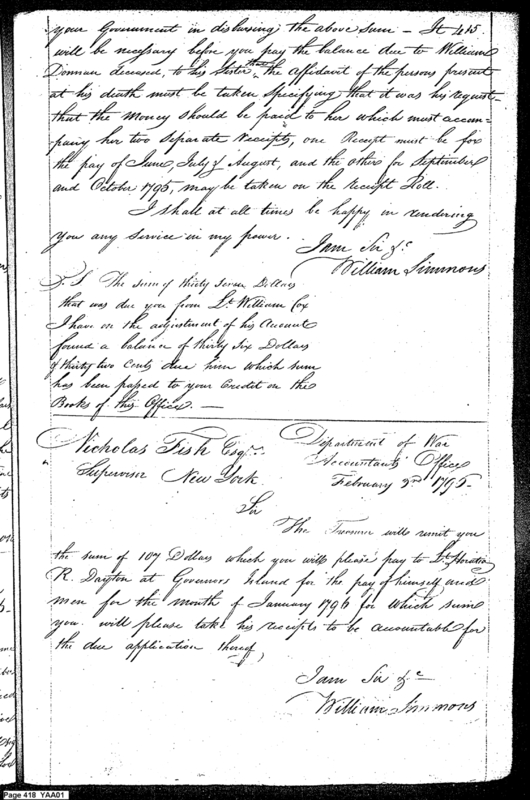 your Government in disbursing the above sum — It 415
will be necessary before you pay the balance due to William
Donnan deceased, to his Sister that the affidavit of the persons present
at his death must be taken specifying that it was his request
that the Money should be paid to her which must accom-
pany her two Separate receipts, one Receipt must be for
the pay of June July & August, and the other for September
and October 1795, may be taken on the receipt Roll.
I shall at all times be happy in rendering
you any service in my power.
I am Sir &c.
William Simmons
P.S The sum of thirty seven Dollars
that was due you from Lt. William Cox
I have on the adjustment of his Account
found a balance of thirty six Dollars
& thirty two Cents due him which sum
has been passed to your Credit on the
Books of this Office. —
Nicholas Fish Esqr. Department of War
Supervisor New York. Accountants Office
February 3rd 1796
Sir
The Treasurer will remit you
the sum of 107 Dollars which you will please pay to Lt. Horatio
R. Dayton at Governors Island for the pay of himself and
men for the month of January 1796 for which sum
you will please take his receipts to be accountable for
the due application thereof,
I am Sir &c
William Simmons
Page 418 YAA01